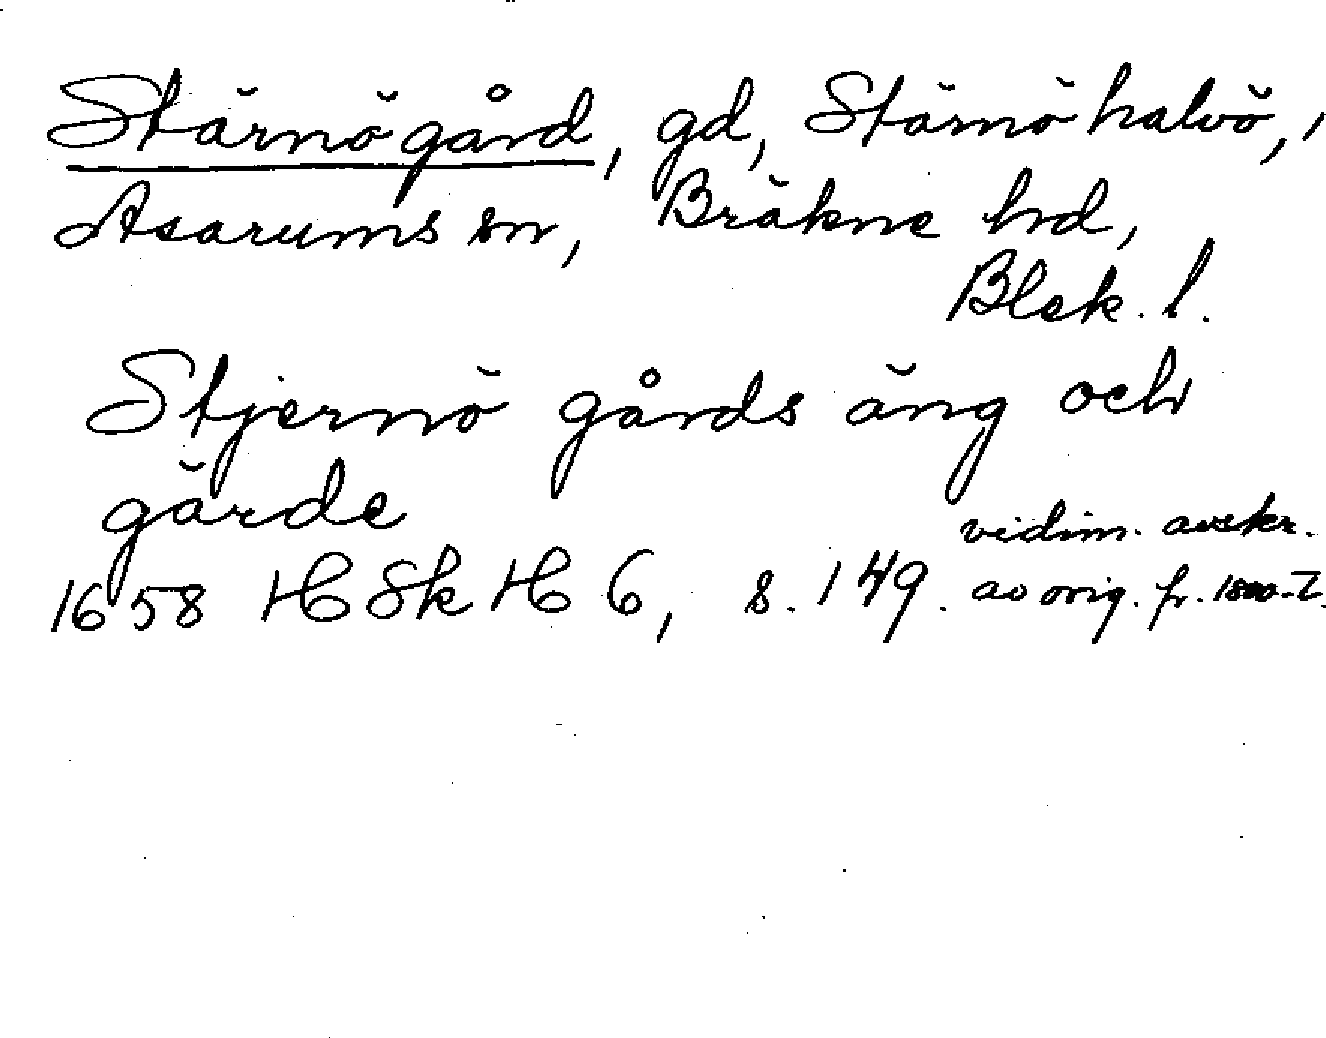 Stärnö gård, gd, Stärnö halvö, i
Asarums sn, Bräkne hd,
Blek. l.
Stjernö gårds äng och
gärde
1658 HSkH 6, s. 149. vidim. avskr.
av orig. fr. 1800-t.